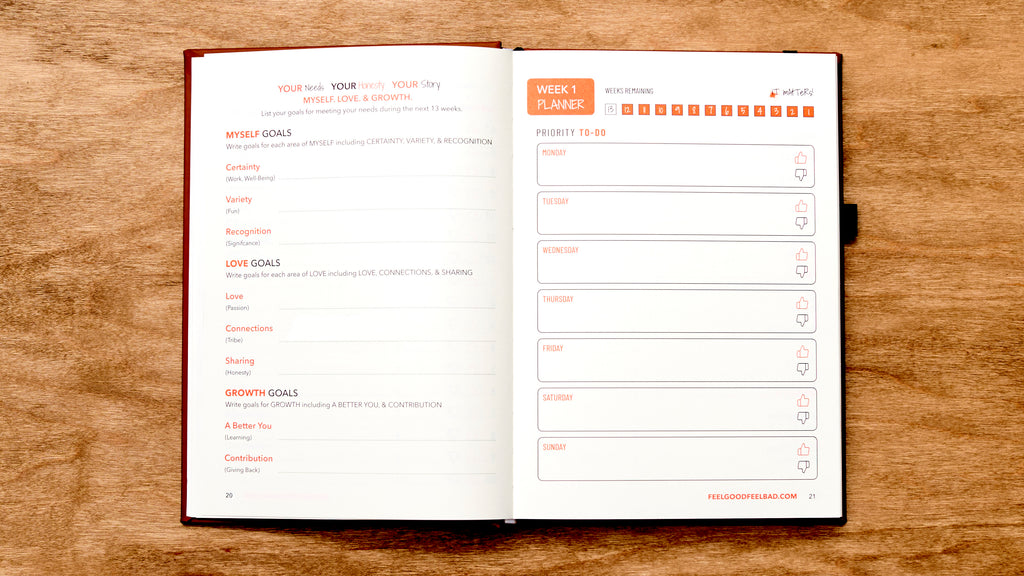 YOUR Needs YOUR Honesty YOUR Story
MYSELF. LOVE. & GROWTH.
List your goals for meeting your needs during the next 13 weeks.
MYSELF GOALS
Write goals for each area of MYSELF including CERTAINTY, VARIETY, & RECOGNITION
Certainty
(Work, Well-Being)
Variety
(Fun)
Recognition
(Signifcance)
LOVE GOALS
Write goals for each area of LOVE including LOVE, CONNECTIONS, & SHARING
Love
(Passion)
Connections
(Tribe)
Sharing
(Honesty)
GROWTH GOALS
Write goals for GROWTH including A BETTER YOU, & CONTRIBUTION
A Better You
(Learning)
Contribution
(Giving Back)
20
WEEK 1
PLANNER
WEEKS REMAINING
I MATTER!
13 12 11 10 9 8 7 6 5 4 3 2 1
PRIORITY TO-DO
MONDAY
TUESDAY
WEDNESDAY
THURSDAY
FRIDAY
SATURDAY
SUNDAY
FEELGOODFEELBAD.COM 21